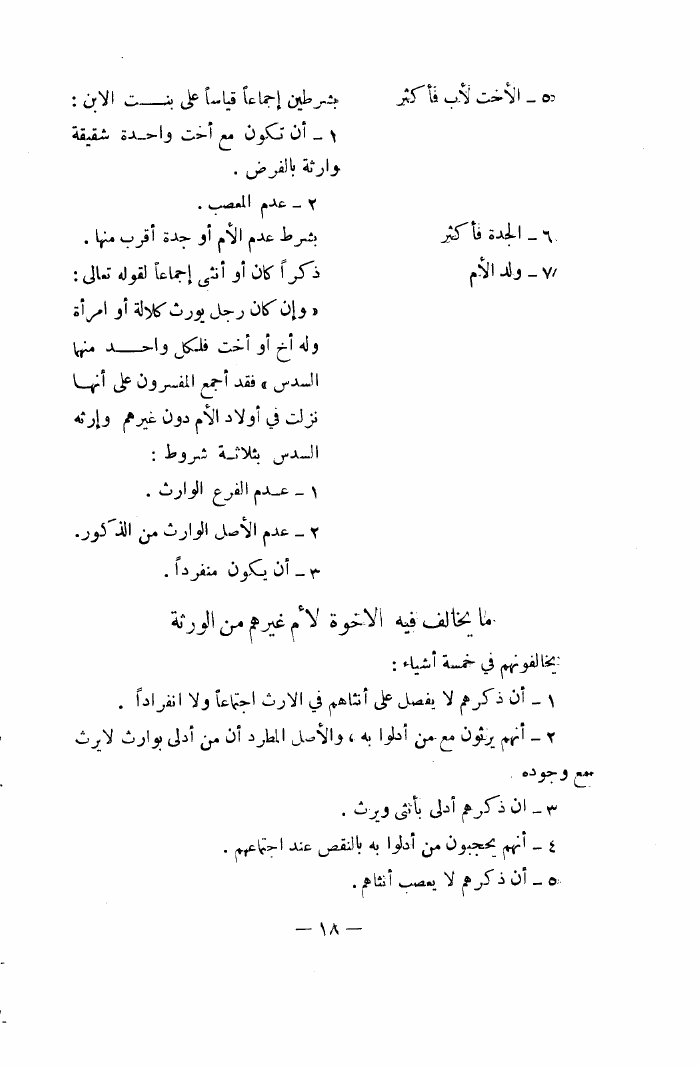 ٥ - الأخت لأب فأكثر بشرطين إجماعاً قياساً على بنت الابن :
١ - أن تكون مع أخت واحدة شقيقة
وارثة بالفرض .
٢ - عدم المعصب .
٦ - الجدة فأكثر بشرط عدم الأم أو جدة أقرب منها .
٧ - ولد الأم ذكراً كان أو أنثى إجماعاً لقوله تعالى :
« وإن كان رجل يورث كلالة أو امرأة
وله أخ أو أخت فلكل واحد منها
السدس » فقد أجمع المفسرون على أنها
نزلت في أولاد الأم دون غيرهم وإرثه
السدس بثلاثة شروط :
١ - عدم الفرع الوارث .
٢ - عدم الأصل الوارث من الذكور.
٣ - أن يكون منفرداً .
ما يخالف فيه الاخوة لأم غيرهم من الورثة
يخالفونهم في خمسة أشياء :
١ - أن ذكرهم لا يفضل على أنثاهم في الارث اجتماعاً ولا انفراداً .
٢ - أنهم يرثون مع من أدلوا به ، والأصل المطرد أن من أدلى بوارث لايرث
مع وجوده .
٣ - ان ذكرهم أدلى بأنثى ويرث .
٤ - أنهم يحجبون من أدلوا به بالنقص عند اجتماعهم .
٥ - أن ذكرهم لا يعصب أنثاهم .
— ١٨ —